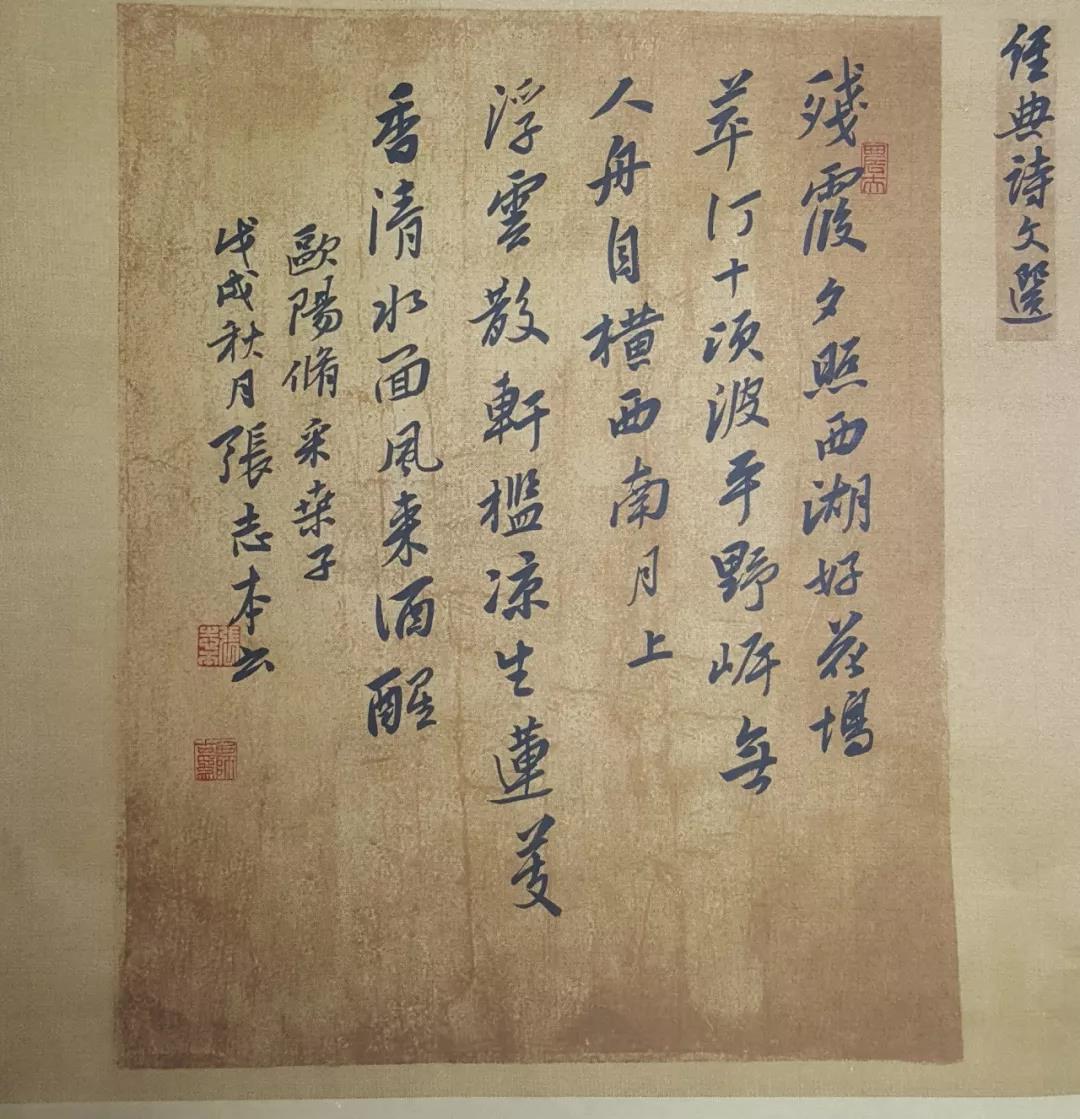 經典詩文選
殘霞夕照西湖好花塢
苹汀十頃波平野岸無
人舟自橫西南月上
浮雲散軒檻凉生蓮芰
香清水面風来酒醒
歐陽脩采桑子
戊戌秋月張志本书